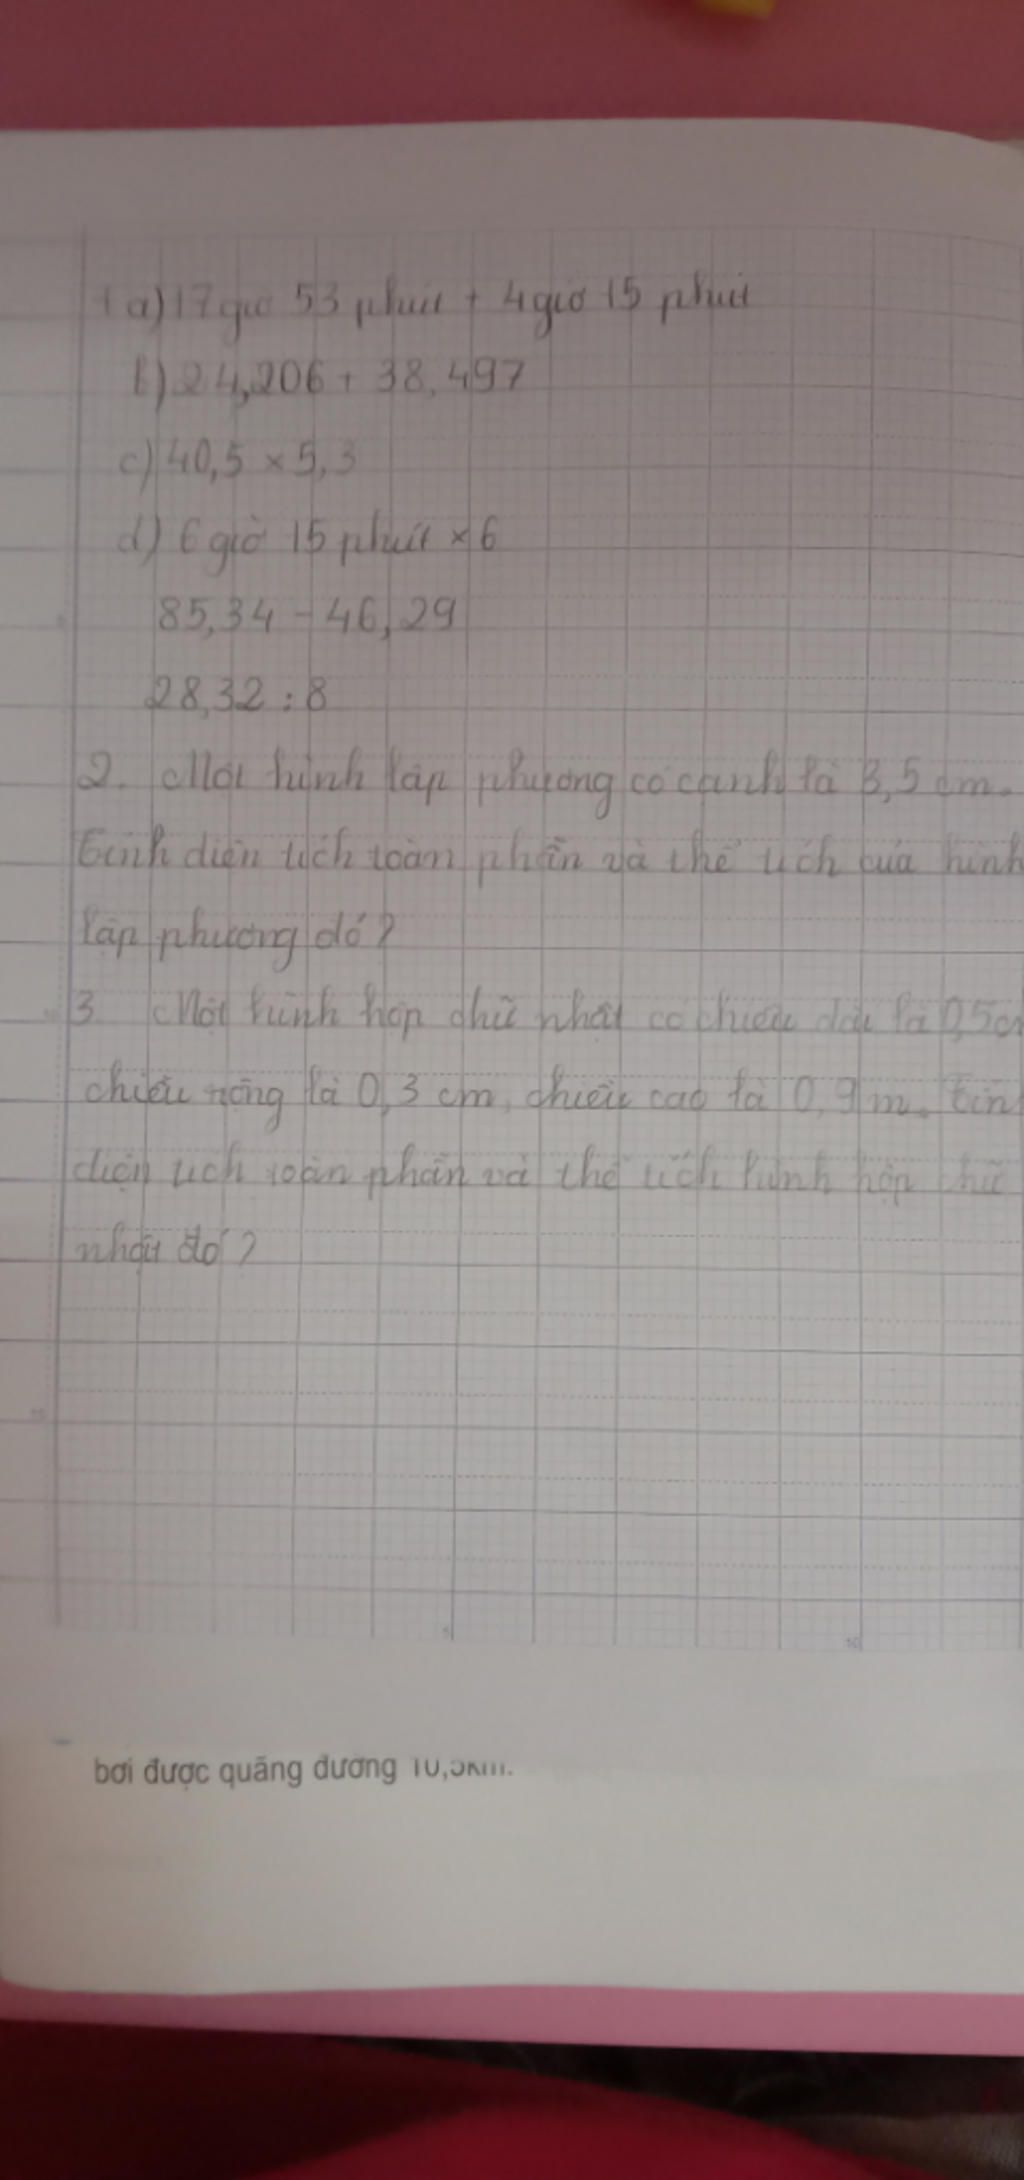 1 a) 17 giờ 53 phút + 4 giờ 15 phút
b) 24,206 + 38,497
c) 40,5 × 5,3
d) 6 giờ 15 phút × 6
85,34 - 46,29
28,32 : 8
2. Một hình lập phương có cạnh là 3,5 cm.
Tính diện tích toàn phần và thể tích của hình
lập phương đó?
3 Một hình hộp chữ nhật có chiều dài là 0,5c
chiều rộng là 0,3 cm, chiều cao là 0,9 m. Tín
diện tích toàn phần và thể tích hình hộp chữ
nhật đó?
bơi được quãng đường 10,5km.